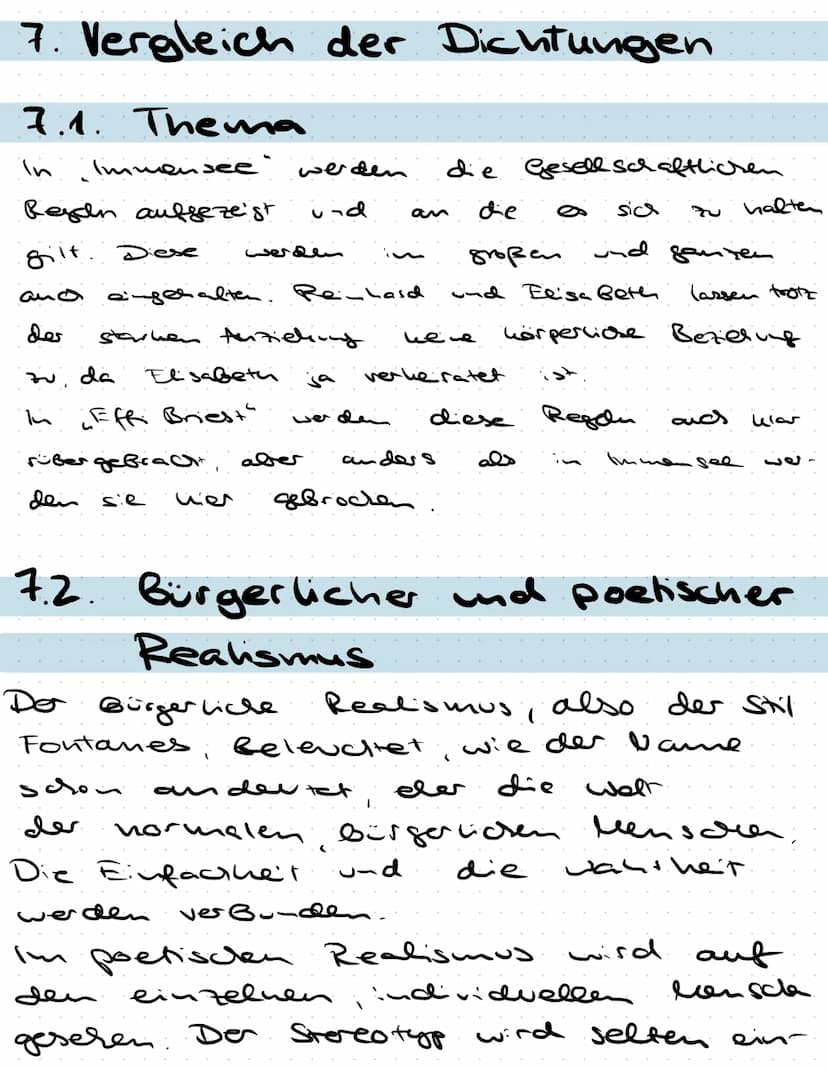 7. Vergleich der Dichtungen
7.1. Thema
In „Immensee" werden die Gesellschaftlichen
Regeln aufgezeigt und an die es sich zu halten
gilt. Diese werden im großen und ganzen
auch eingehalten. Reinhard und Elisabeth lassen trotz
der starken Anziehung keine körperliche Beziehung
zu, da Elisabeth ja verheiratet ist.
In „Effi Briest" werden diese Regeln auch klar
rübergebracht, aber anders als in Immensee wer-
den sie hier gebrochen.
7.2. Bürgerlicher und poetischer
Realismus
Der Bürgerliche Realismus, also der Stil
Fontanes, beleuchtet, wie der Name
schon andeutet, eher die Welt
der normalen, bürgerlichen Menschen.
Die Einfachheit und die Wahrheit
werden verbunden.
Im poetischen Realismus wird auf
den einzelnen, individuellen Mensch
gesehen. Der Stereotyp wird selten ein-